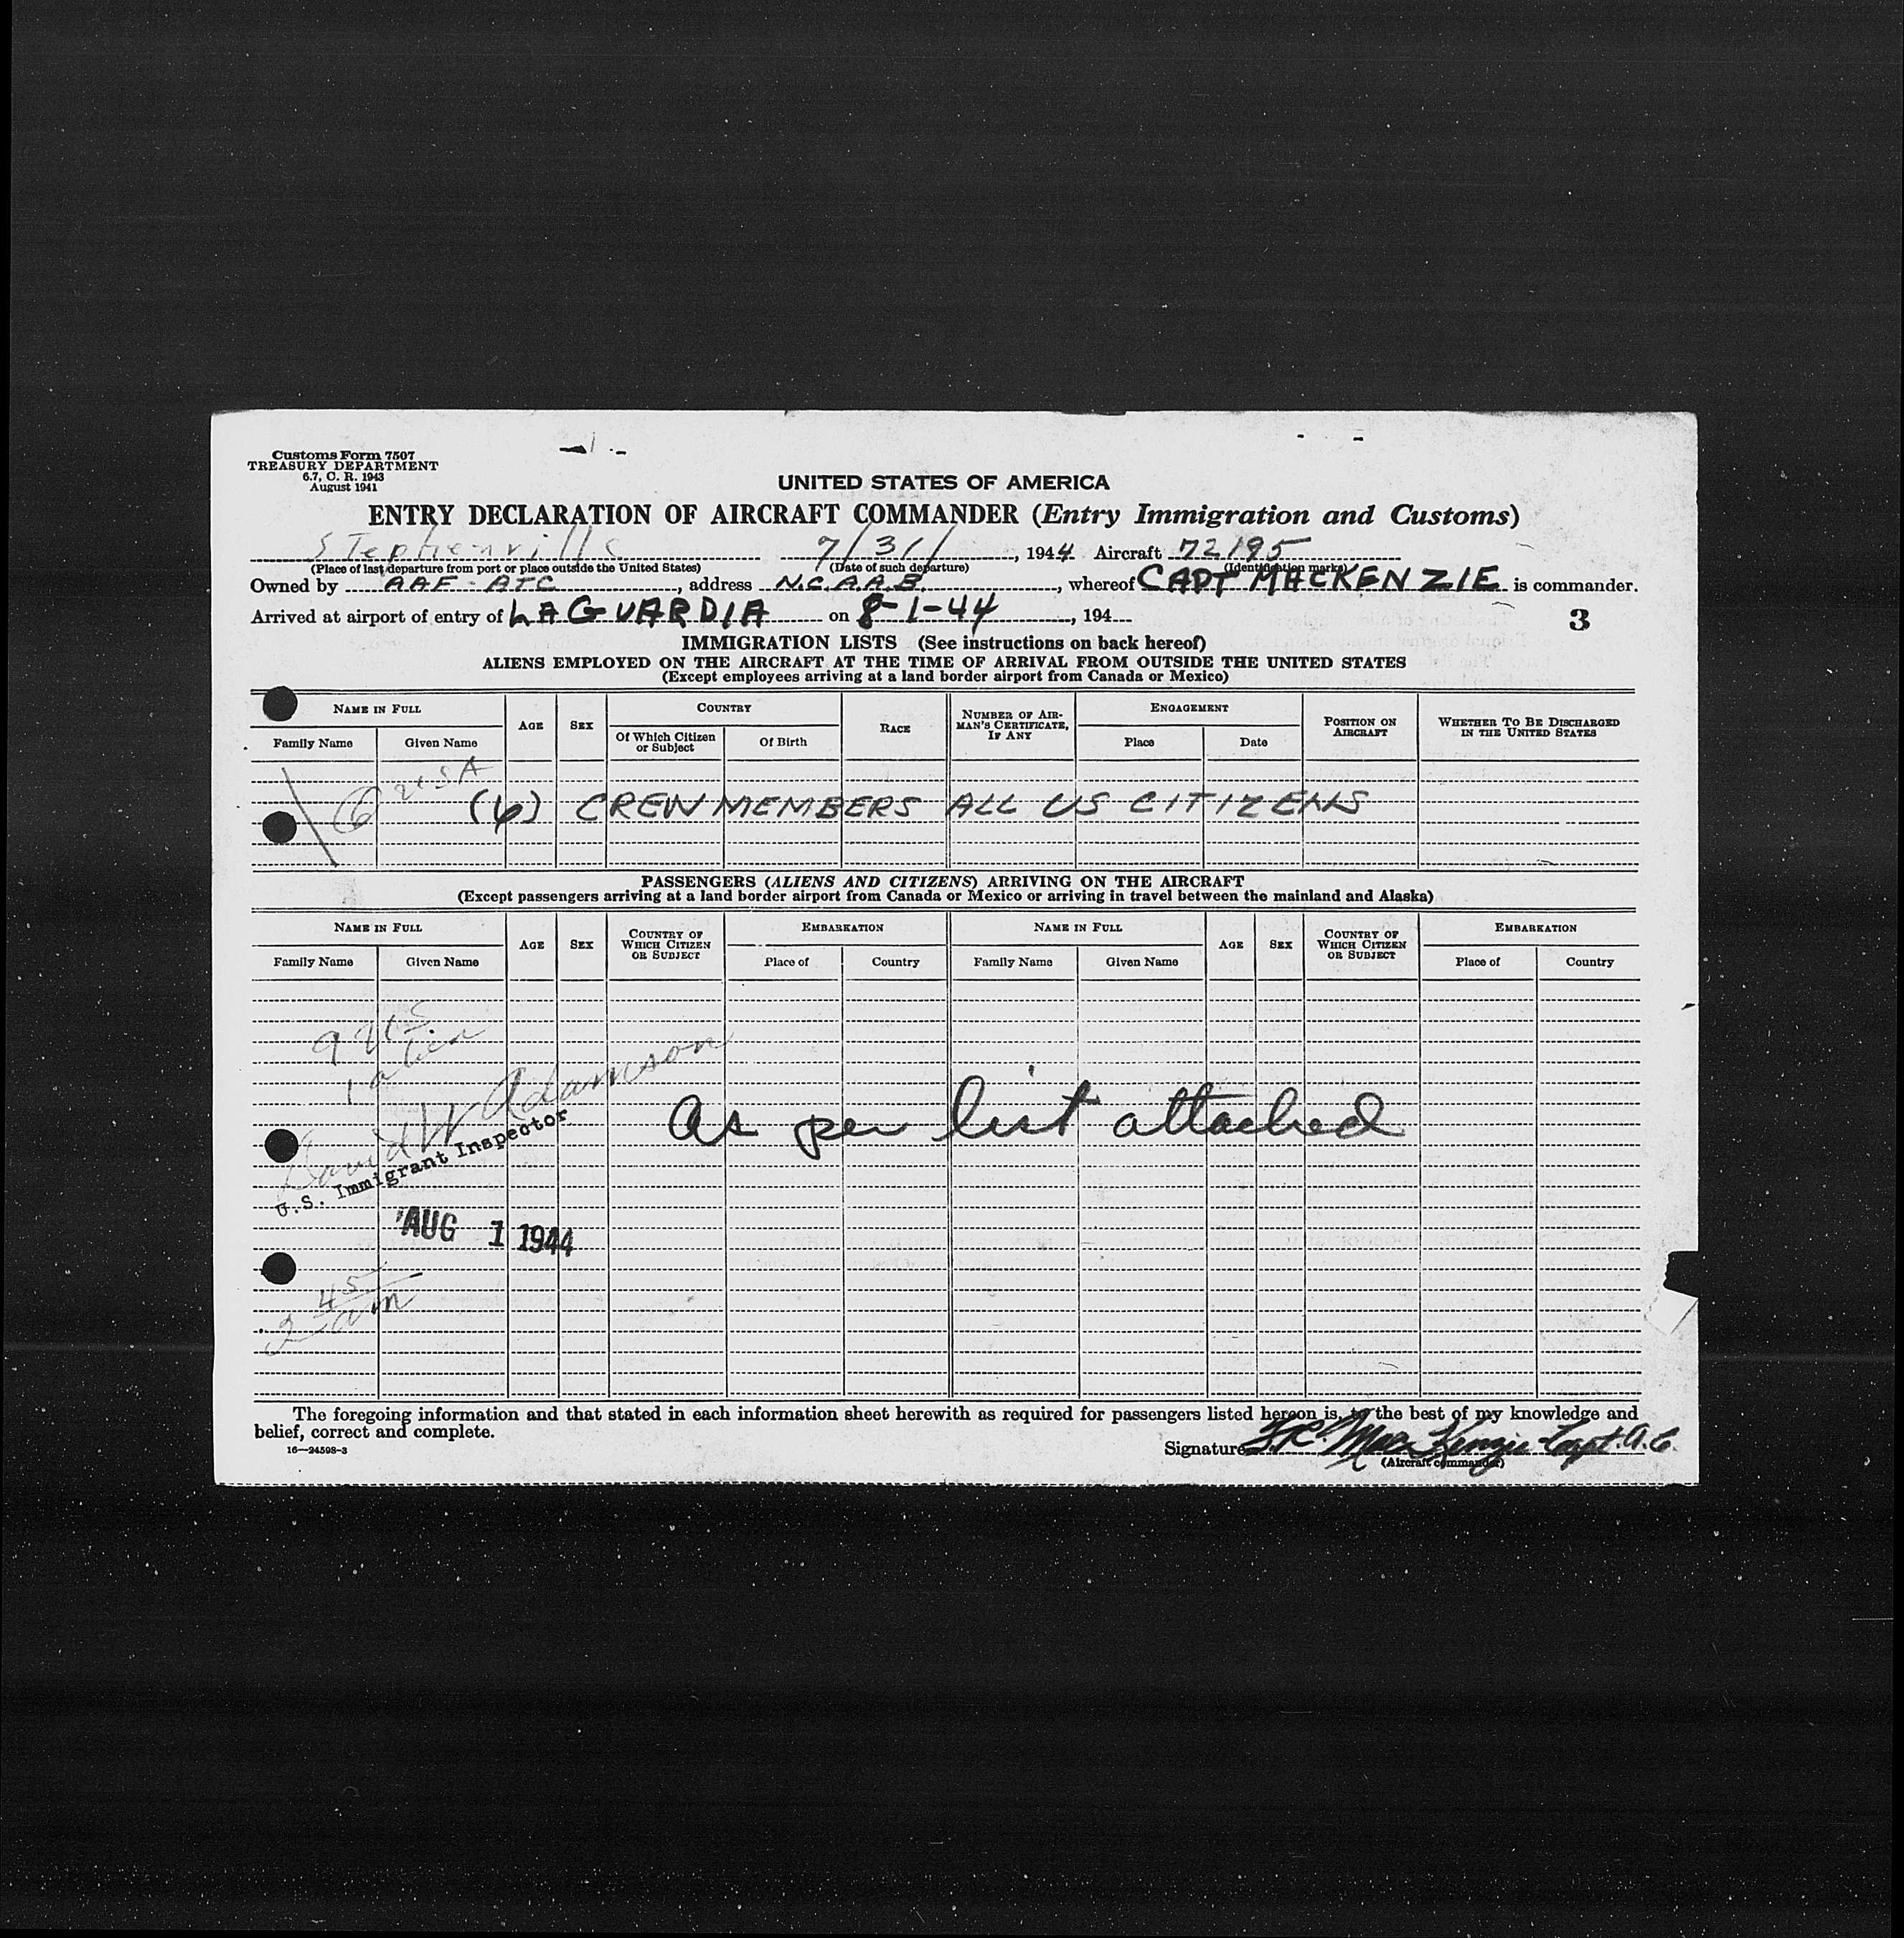 Customs Form 7507
TREASURY DEPARTMENT
6.7, C. R. 1943
August 1941
UNITED STATES OF AMERICA
ENTRY DECLARATION OF AIRCRAFT COMMANDER (Entry Immigration and Customs)
Stephenville 7/31/, 1944 Aircraft 72195
(Place of last departure from port or place outside the United States) (Date of such departure) (Identification marks)
Owned by AAF - ATC, address N.C.A.A.B., whereof CAPT MACKENZIE is commander.
Arrived at airport of entry of LAGUARDIA on 8-1-44, 194
3
IMMIGRATION LISTS (See instructions on back hereof)
ALIENS EMPLOYED ON THE AIRCRAFT AT THE TIME OF ARRIVAL FROM OUTSIDE THE UNITED STATES
(Except employees arriving at a land border airport from Canada or Mexico)
NAME IN FULL AGE SEX COUNTRY RACE NUMBER OF AIRMAN'S CERTIFICATE, IF ANY ENGAGEMENT POSITION ON AIRCRAFT WHETHER TO BE DISCHARGED IN THE UNITED STATES
Family Name Given Name Of Which Citizen or Subject Of Birth Place Date
6 USA
(6) CREW MEMBERS ALL US CITIZENS
PASSENGERS (ALIENS AND CITIZENS) ARRIVING ON THE AIRCRAFT
(Except passengers arriving at a land border airport from Canada or Mexico or arriving in travel between the mainland and Alaska)
NAME IN FULL AGE SEX COUNTRY OF WHICH CITIZEN OR SUBJECT EMBARKATION NAME IN FULL AGE SEX COUNTRY OF WHICH CITIZEN OR SUBJECT EMBARKATION
Family Name Given Name Place of Country Family Name Given Name Place of Country
1 alien
David W Adamson
U.S. Immigrant Inspector
As per list attached
AUG 1 1944
2 45 am
The foregoing information and that stated in each information sheet herewith as required for passengers listed hereon is, to the best of my knowledge and
belief, correct and complete.
16—24598-3
Signature MacKenzie Capt. A.C.
(Aircraft commander)